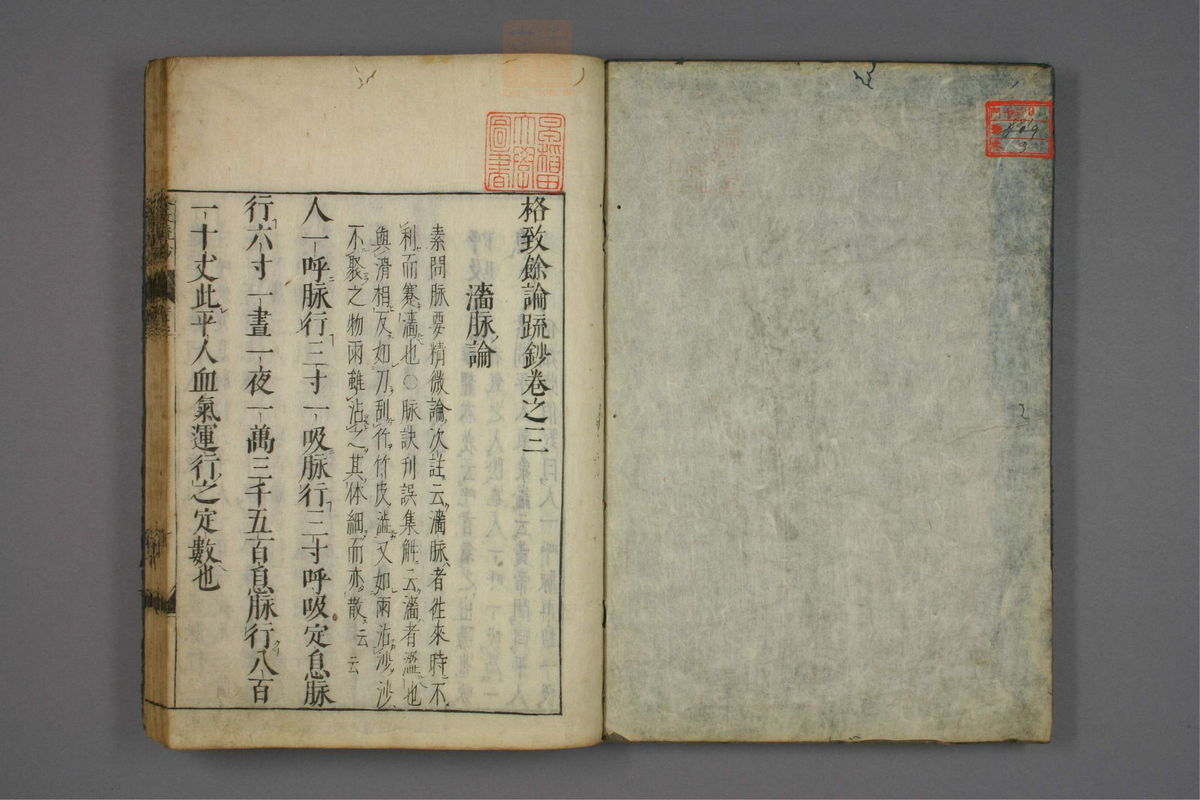 格致餘論疏鈔卷之三
濇脉論
素問脉要精微論次註云濇脉者徃來時不
利而蹇濇也○脉訣刊誤集解云濇者濇也
與滑相反如刀刮竹竹皮澁又如雨沾沙沙
不聚之物雨雖沾之其体細而亦散云云
人一呼脉行三寸一吸脉行三寸呼吸定息脉
行六寸一晝一夜一萬三千五百息脉行八百
一十丈此平人血氣運行之定數也
早稲田
大學
圖書